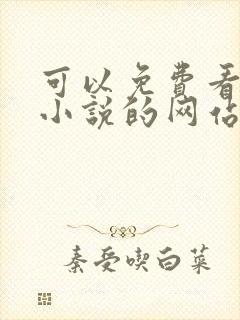 可以免费看
小说的网站
秦受喫白菜